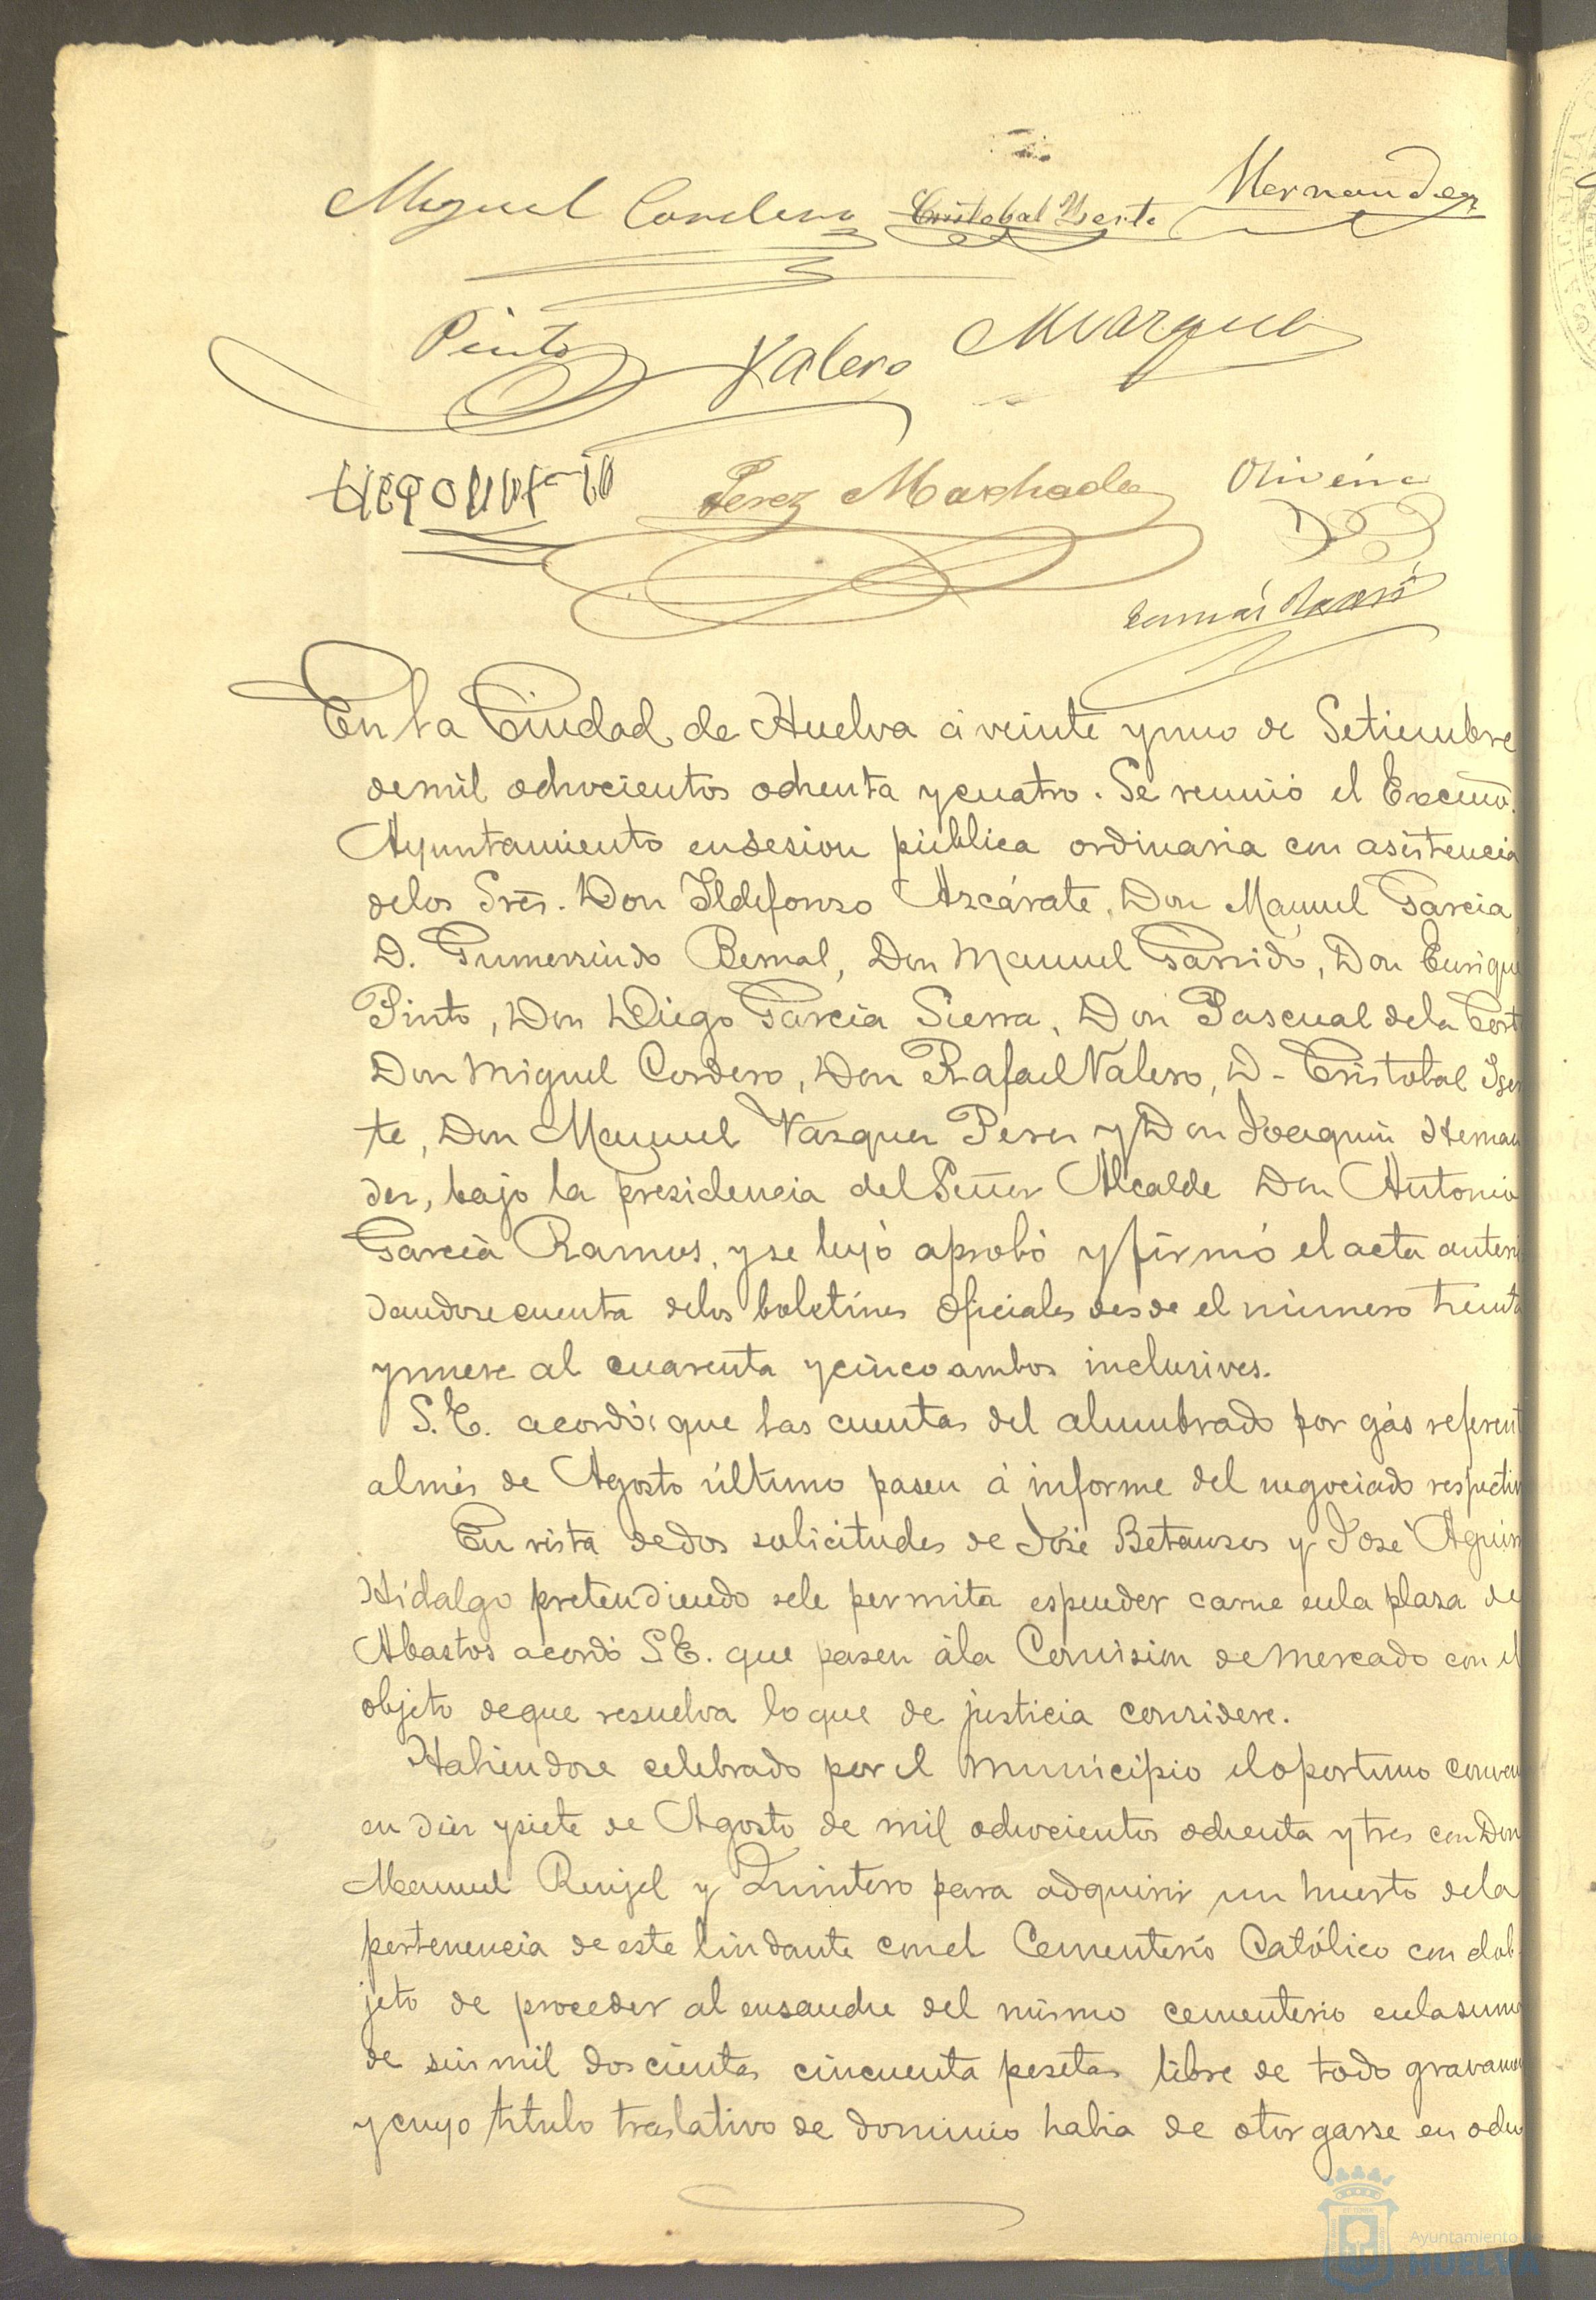 Miguel Cordero Cristobal Iserte Hernandez
Pinto Valero Marquez
Perez Machado Oliveira
En la Ciudad de Huelva á veinte y uno de Setiembre
de mil ochocientos ochenta y cuatro. Se reunió el Excmo.
Ayuntamiento en sesion pública ordinaria con asistencia
de los Sres. Don Ildefonso Azcárate, Don Manuel Garcia,
D. Gumersindo Bernal, Don Manuel Garrido, Don Enrique
Pinto, Don Diego Garcia Sierra, Don Pascual de la Cort
Don Miguel Cordero, Don Rafael Valero, D. Cristobal Iser
te, Don Manuel Vazquez Perez y Don Joaquin Hernan
dez, bajo la presidencia del Señor Alcalde Don Antonio
Garcia Ramos, y se leyó aprobó y firmó el acta anteri
dandose cuenta de los boletines oficiales desde el número treinta
y nueve al cuarenta y cinco ambos inclusives.
S.E. acordó que las cuentas del alumbrado por gás referent
al mes de Agosto último pasen á informe del negociado respectiv
En vista de dos solicitudes de José Betanzos y José Aguir
Hidalgo pretendiendo se le permita espender carne en la plaza de
Abastos acordó S.E. que pasen á la Comision de Mercado con el
objeto de que resuelva lo que de justicia considere.
Habiendose celebrado por el Municipio el oportuno conven
en diez y siete de Agosto de mil ochocientos ochenta y tres con Don
Manuel Renjel y Quintero para adquirir un huerto de la
pertenencia de este lindante con el Cementerio Católico con el ob
jeto de proceder al ensanche del mismo cementerio en la suma
de seis mil doscientas cincuenta pesetas libre de todo gravamen
y cuyo título traslativo de dominio habia de otorgarse en ocho
Ayuntamiento de
HUELVA